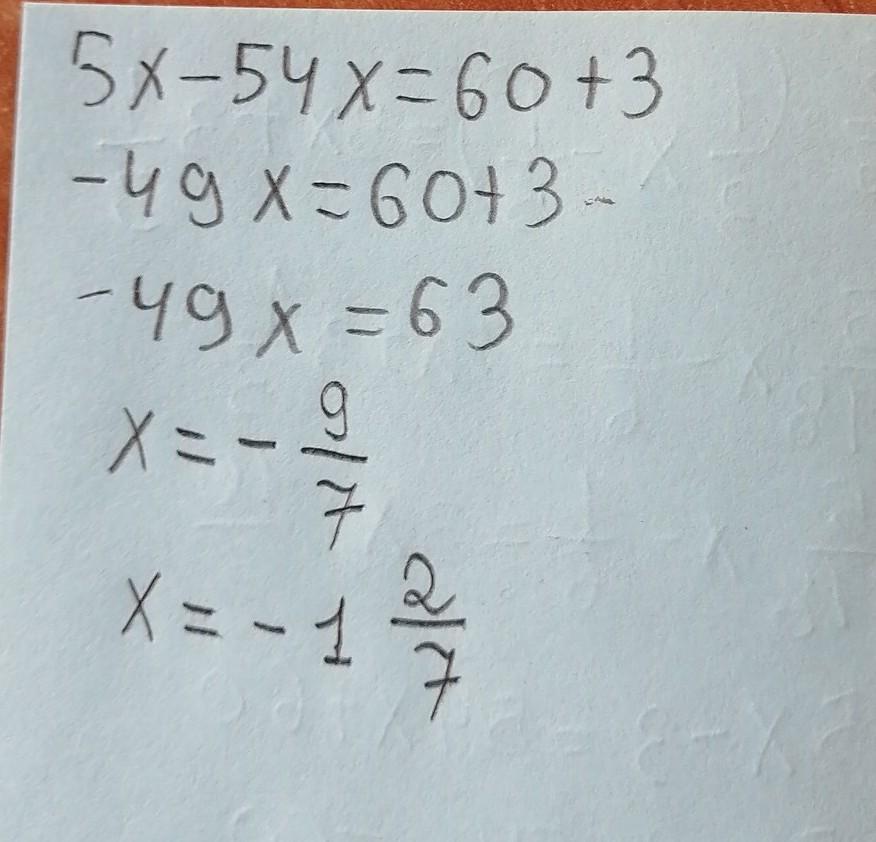 5x-54x=60+3
-49x=60+3
-49x=63
x=-9/7
x=-1 2/7